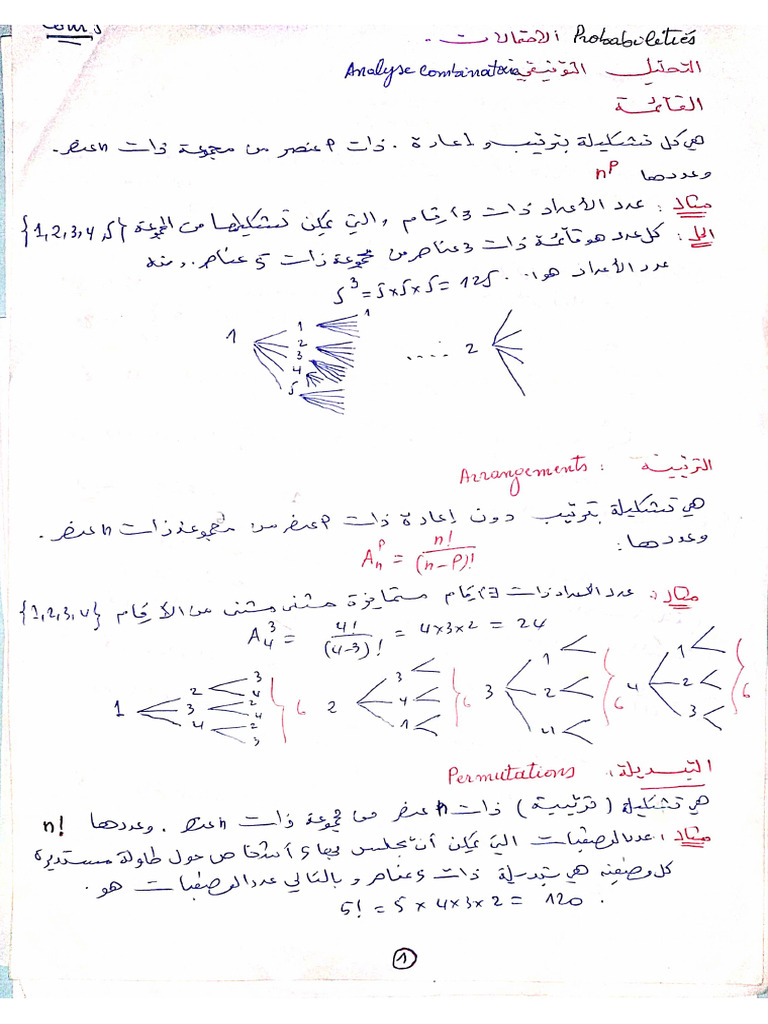 الاحتمالات Probabilités
التحليل التوفيقي Analyse combinatoire
القائمة
هي كل تشكيلة بترتيب و إعادة. ذات p عنصر من مجموعة ذات n عنصر.
وعددها n^p
مثال: عدد الأعداد ذات 3 أرقام والتي يمكن تشكيلها من المجموعة {1,2,3,4,5}
الحل: كل عدد هو قائمة ذات 3 عناصر من مجموعة ذات 5 عناصر. ومنه
عدد الأعداد هو:
5^3 = 5×5×5 = 125
1 1 2 3 4 5 1 ..... 2
الترتيبة: Arrangements
هي تشكيلة بترتيب دون إعادة ذات p عنصر من مجموعة ذات n عنصر.
وعددها: A_n^p = n!/(n-p)!
مثال: عدد الأعداد ذات 3 أرقام متمايزة مثنى مثنى من الأرقام {1,2,3,4}
A_4^3 = 4!/(4-3)! = 4×3×2 = 24
1 2 3 4 3 4 2 4 2 3 6 2 3 4 1 6 3 1 2 4 6 4 1 2 3 6
التبديلة: Permutations
هي تشكيلة (ترتيبة) ذات n عنصر من مجموعة ذات n عنصر. وعددها n!
مثال: عدد الوضعيات التي يمكن أن يجلس بها 5 أشخاص حول طاولة مستديرة
كل وضعية هي تبديلة ذات 5 عناصر و بالتالي عدد الوضعيات هو
5! = 5×4×3×2 = 120.
1